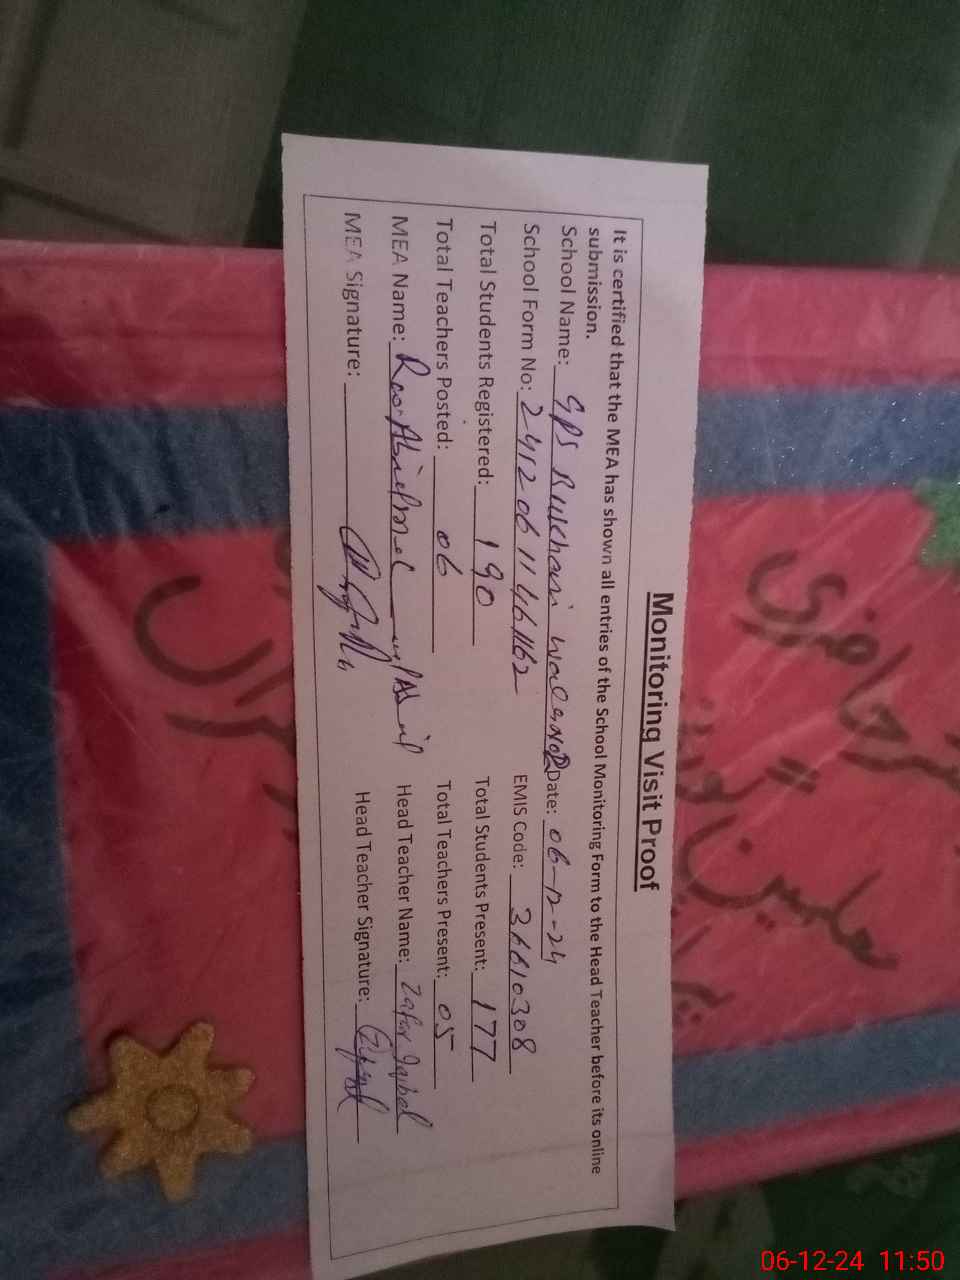 Monitoring Visit Proof
It is certified that the MEA has shown all entries of the School Monitoring Form to the Head Teacher before its online
submission.
School Name: GPS Bukhari Date: 06-12-24
School Form No: 2412061146162 EMIS Code: 36610308
Total Students Registered: 190 Total Students Present: 177
Total Teachers Posted: 06 Total Teachers Present: 05
MEA Name: Head Teacher Name: Zafar Iqbal
MEA Signature: Head Teacher Signature:
حاضری
معلمین
06-12-24 11:50